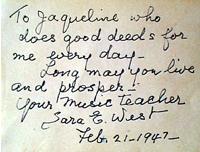 To Jaqueline who
does good deeds for
me every day—
Long may you live
and prosper—!
Your Music teacher
Sara E. West
Feb. 21-1947—